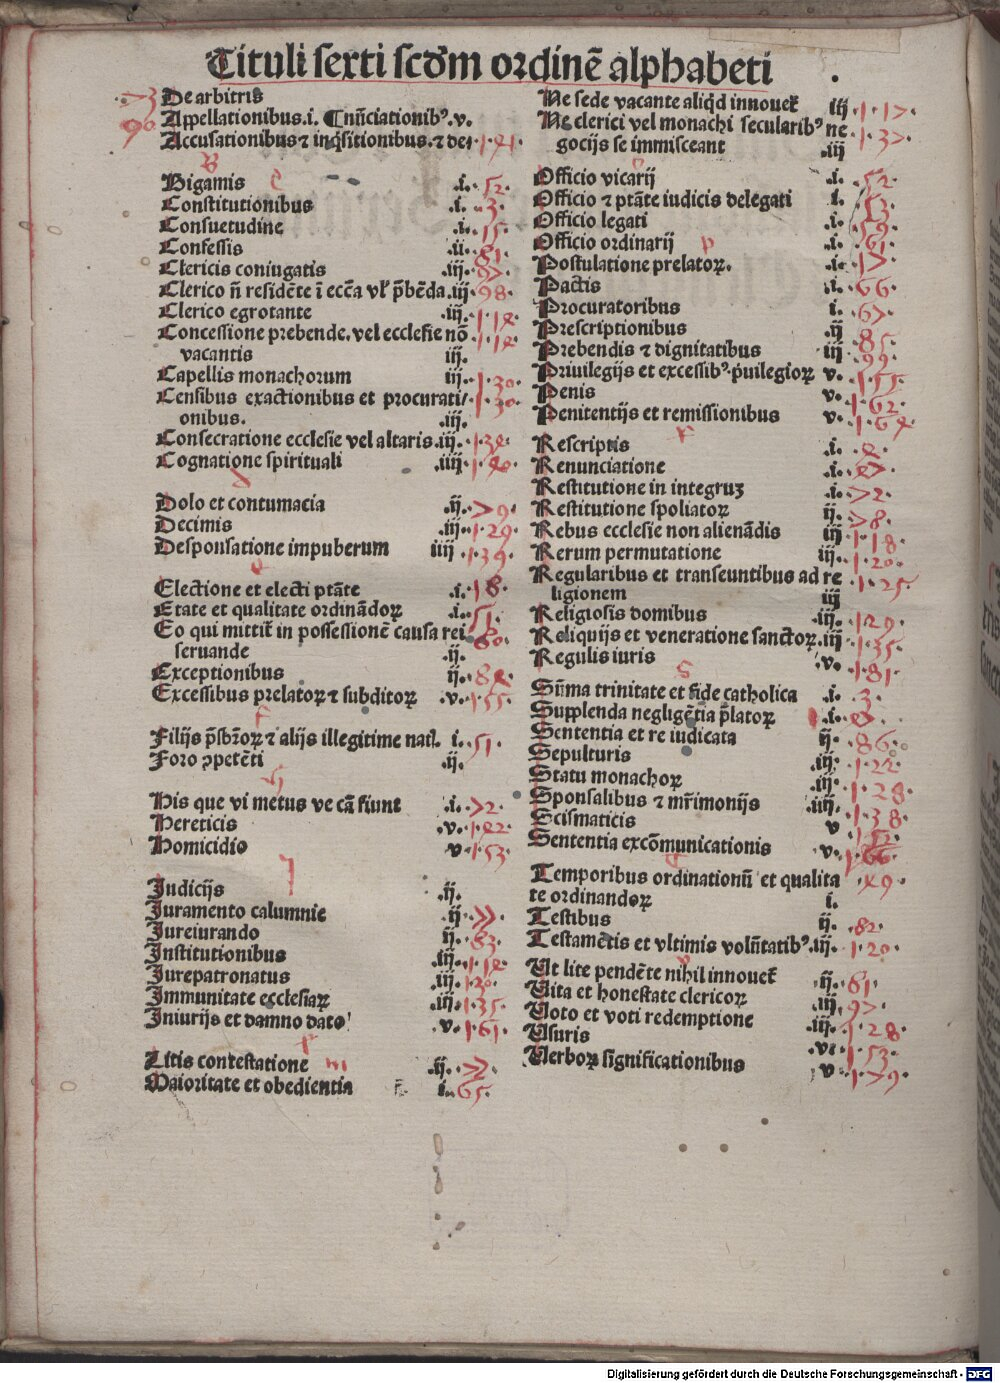 Tituli sexti scdm ordinē alphabeti .
De arbitris
Appellationibus.i. ¶ Nūciationibꝰ.v.
Accusationibus ⁊ inqͥsitionibus.⁊ de.
B
Bigamis .i. 52.
C
Constitutionibus .i. 3.
Consuetudine .i. 15.
Confessis .ii. 81.
Clericis coniugatis .iij.
Clerico ñ residēte ī eccͣa vl' p̄bēda .iij 98.
Clerico egrotante .iij.
Concessione prebende. vel ecclesie nō
vacantis iij.
Capellis monachorum iij. 130.
Censibus exactionibus et procurati/ 130.
onibus. .iij.
Consecratione ecclesie vel altaris .iij.
Cognatione spirituali .iiij
D
Dolo et contumacia .ij. >9.
Decimis .iij. 129.
Desponsatione impuberum iiij 139.
E
Electione et electi ptāte .i. 18.
Etate et qualitate ordinādoꝝ .i. 51.
Eo qui mittit̄ in possessionē causa rei 80.
seruande .ij.
Exceptionibus ij.
Excessibus prelatoꝝ ⁊ subditoꝝ .v. 155.
F
Filijs p̄sb̄roꝝ ⁊ alijs illegitime nat̄. i. 51.
Foro ↄpetēti .ij.
H
His que vi metus ve cā fiunt .i. >2.
Hereticis .v.
Homicidio v 153.
J
Judicijs .ij.
Juramento calumnie ij >>.
Jureiurando ij. 83.
Institutionibus .iij.
Jurepatronatus .iij 120.
Immunitate ecclesiaꝝ .iij 135.
Iniurijs et damno dato .v. 161.
Litis contestatione ij. >2.
m
Maioritate et obedientia i. 65.
Ne sede vacante aliqd innouet̄ iij 1·1>.
Ne clerici vel monachi secularibꝰ ne 1·3>.
gocijs se immisceant .iij
O
Officio vicarij .i. 52.
Officio ⁊ ptāte iudicis delegati i. 53.
Officio legati .i. 59.
Officio ordinarij .i. 61.
p
Postulatione prelatoꝝ. .i. 1>.
Pactis .i. 66.
Procuratoribus i. 6>.
Prescriptionibus ij 85.
Prebendis ⁊ dignitatibus iij 99.
Priuilegijs et excessibꝰ. p̄uilegioꝝ v. 155.
Penis v. 162.
Penitentijs et remissionibus v.
R
Rescriptis .i.
Renunciatione .i.
Restitutione in integruꝫ .i. >2.
Restitutione spoliatoꝝ ij. >8.
Rebus ecclesie non alienādis iij 118.
Rerum permutatione iij. 120.
Regularibus et transeuntibus ad re 1·25
ligionem iij
Religiosis domibus .iij. 129.
Reliquijs et veneratione sanctoꝝ .iij 135.
Regulis iuris .v. 181.
S
Sūma trinitate et fide catholica .i. 3.
Supplenda negligētia p̄latoꝝ .i.
Sententia et re iudicata ij. 86.
Sepulturis .iij. 122.
Statu monachoꝝ .iij 128.
Sponsalibus ⁊ mr̄imonijs .iiij. 138.
Scismaticis v
Sententia excōmunicationis v. 166.
T
Temporibus ordinationū et qualita
te ordinandoꝝ i.
Testibus ij. 82.
Testamētis et vltimis volūtatibꝰ. iij. 120.
Ut lite pendēte nihil innouet̄ ij. 61.
Vita et honestate clericoꝝ .iij 9>.
Voto et voti redemptione .iij. 128.
Usuris .v. 153.
Verboꝝ significationibus v 1>9.
Digitalisierung gefördert durch die Deutsche Forschungsgemeinschaft - DFG